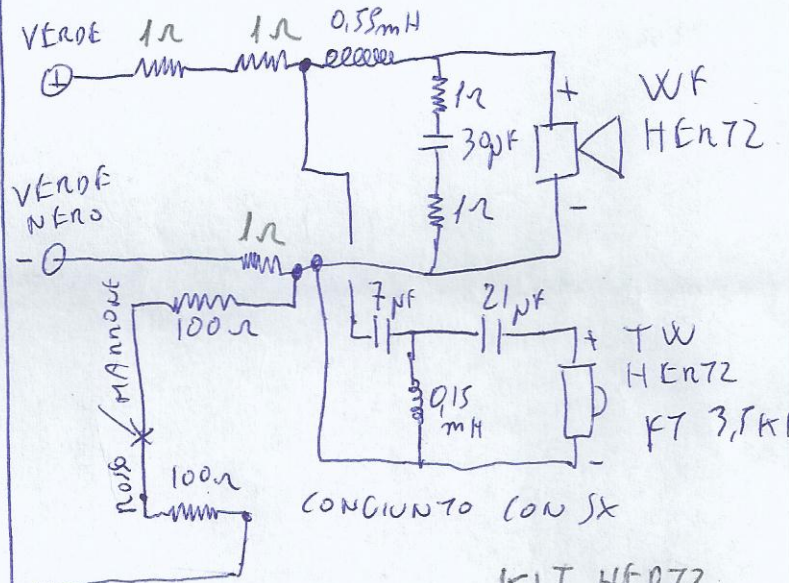 VERDE 1Ω 1Ω 0,55mH
+
1Ω
30µF
1Ω
+ WF
HERTZ
-
VERDE
NERO
- 1Ω
100Ω
MARRONE
ROSA
100Ω
7µF 21µF
0,15
mH
+ TW
HERTZ
FT 3,5K
-
CONGIUNTO CON SX
KIT HERTZ